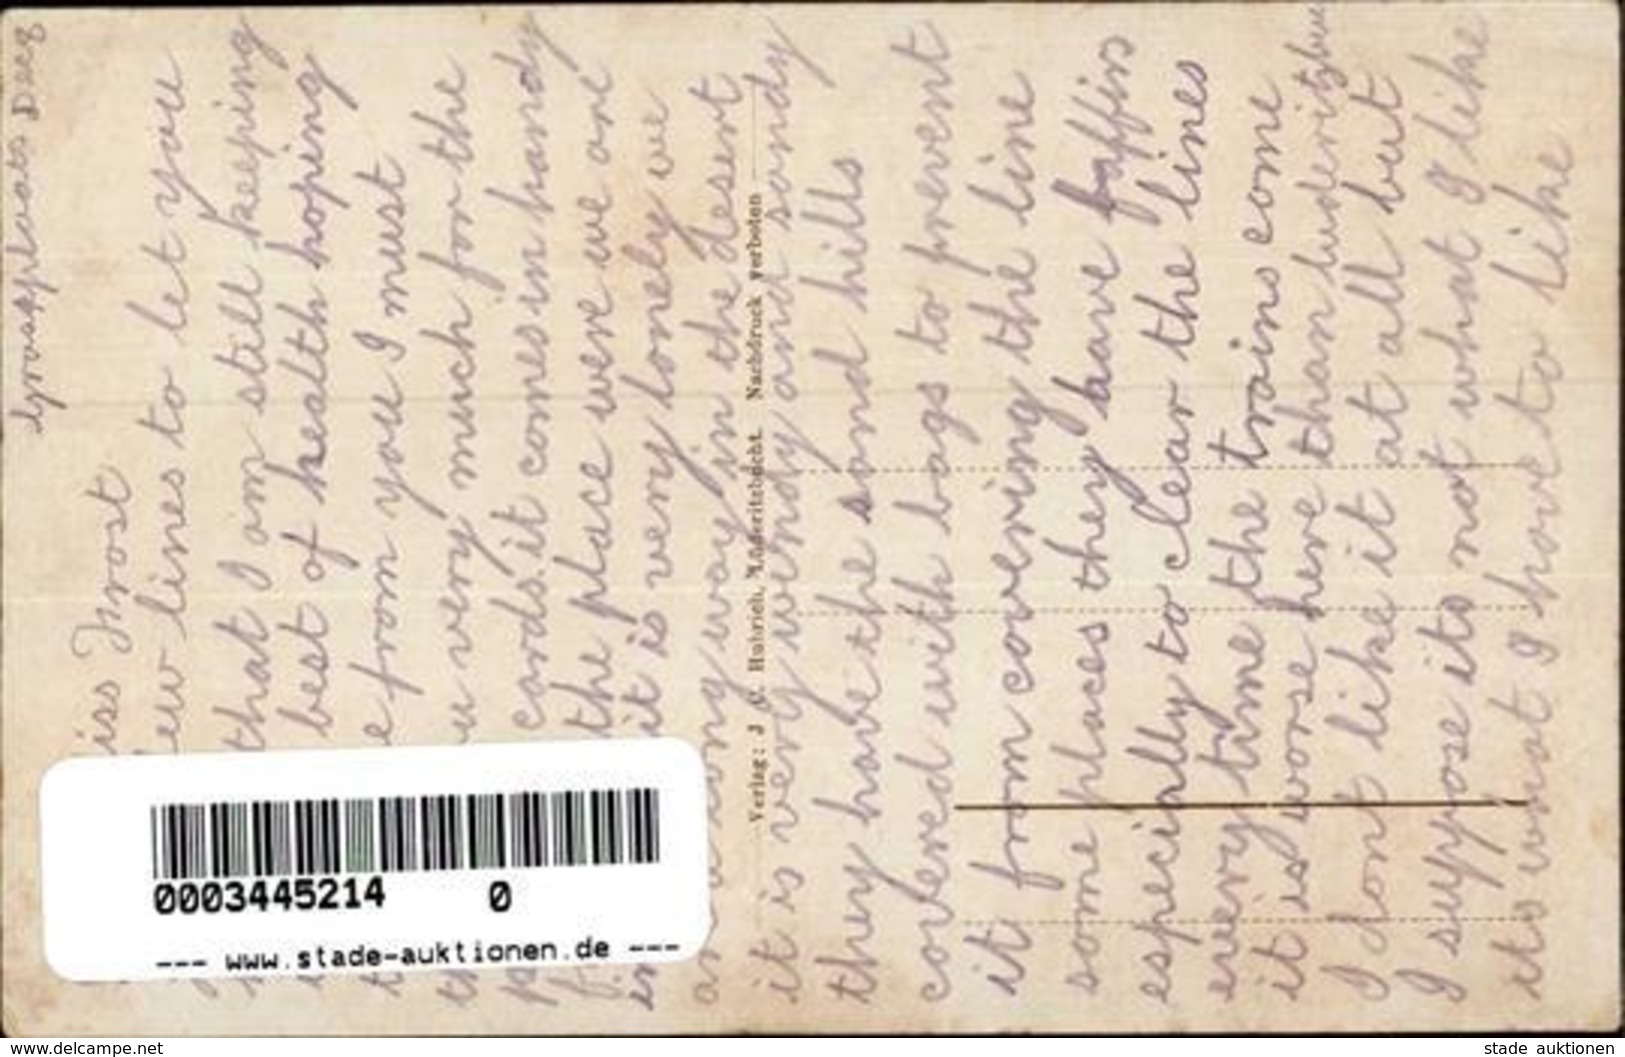 Grasplaats Dec 8
iss Frost
ew lines to let you
that I am still keeping
best of health hoping
e from you I must
u very much for the
cards. it comes in handy
the place were we are
in it is very lonely we
are a long way in the desert
it is very windy and sandy
they have the sand hills
covered with bags to prevent
it from covering the line
some places they have kaffirs
especially to clear the lines
every time the trains come
it is worse here than luderitzbu
I dont like it at all but
I suppose its not what I like
its what I have to like
Verlag: J. C. Hubrich, Lüderitzbucht. Nachdruck verboten
0003445214 0
--- www.stade-auktionen.de ---
www.delcampe.net
stade_auktionen